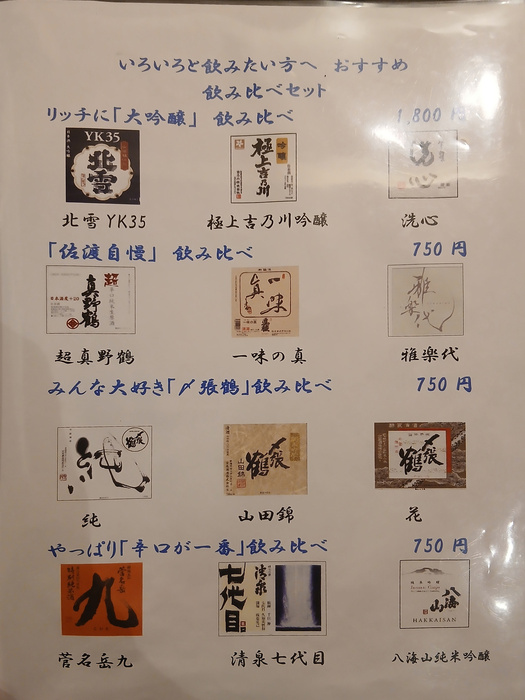 いろいろと飲みたい方へ おすすめ
飲み比べセット
リッチに「大吟醸」 飲み比べ 1,800 円
YK35
北雪
極上吉乃川
吟醸
洗心
北雪 YK35 極上吉乃川吟醸 洗心
「佐渡自慢」 飲み比べ 750 円
超
真野鶴
一味
真
雅楽代
超真野鶴 一味の真 雅楽代
みんな大好き「〆張鶴」飲み比べ 750 円
純
〆張鶴
山田錦
〆張鶴
純 山田錦 花
やっぱり「辛口が一番」飲み比べ 750 円
菅名岳
九
清泉
七代目
八海山
HAKKAISAN
菅名岳九 清泉七代目 八海山純米吟醸